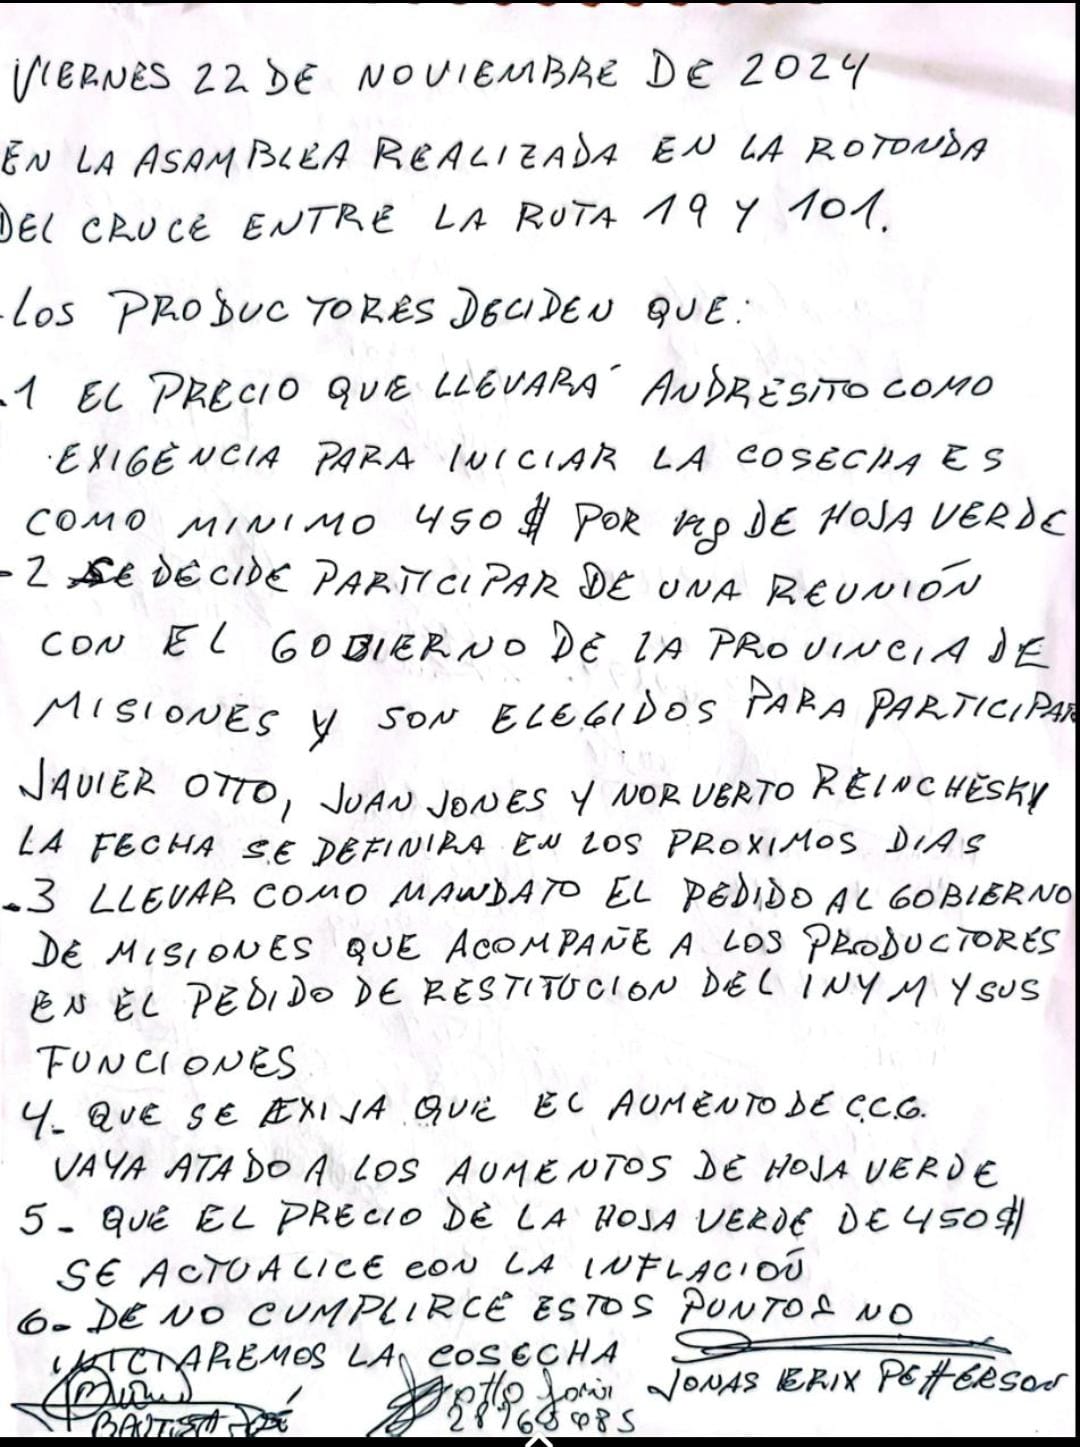 VIERNES 22 DE NOVIEMBRE DE 2024
EN LA ASAMBLEA REALIZADA EN LA ROTONDA
DEL CRUCE ENTRE LA RUTA 19 Y 101.
-LOS PRODUCTORES DECIDEN QUE:
.1 EL PRECIO QUE LLEVARÁ ANDRESITO COMO
EXIGENCIA PARA INICIAR LA COSECHA ES
COMO MINIMO 450 $ POR Kg DE HOJA VERDE
-2 SE DECIDE PARTICIPAR DE UNA REUNIÓN
CON EL GOBIERNO DE LA PROVINCIA DE
MISIONES Y SON ELEGIDOS PARA PARTICIPAR
JAVIER OTTO, JUAN JONES Y NORVERTO REINCHESKY
LA FECHA SE DEFINIRA EN LOS PROXIMOS DIAS
.3 LLEVAR COMO MANDATO EL PEDIDO AL GOBIERNO
DE MISIONES QUE ACOMPAÑE A LOS PRODUCTORES
EN EL PEDIDO DE RESTITUCION DEL INYM Y SUS
FUNCIONES
4- QUE SE EXIJA QUE EL AUMENTO DE C.C.G.
VAYA ATADO A LOS AUMENTOS DE HOJA VERDE
5- QUE EL PRECIO DE LA HOJA VERDE DE 450$
SE ACTUALICE CON LA INFLACIÓN
6- DE NO CUMPLIRCE ESTOS PUNTOS NO
INICIAREMOS LA COSECHA
JONAS ERIX PEFFERSON
BAUTISTA JOSÉ
Otto